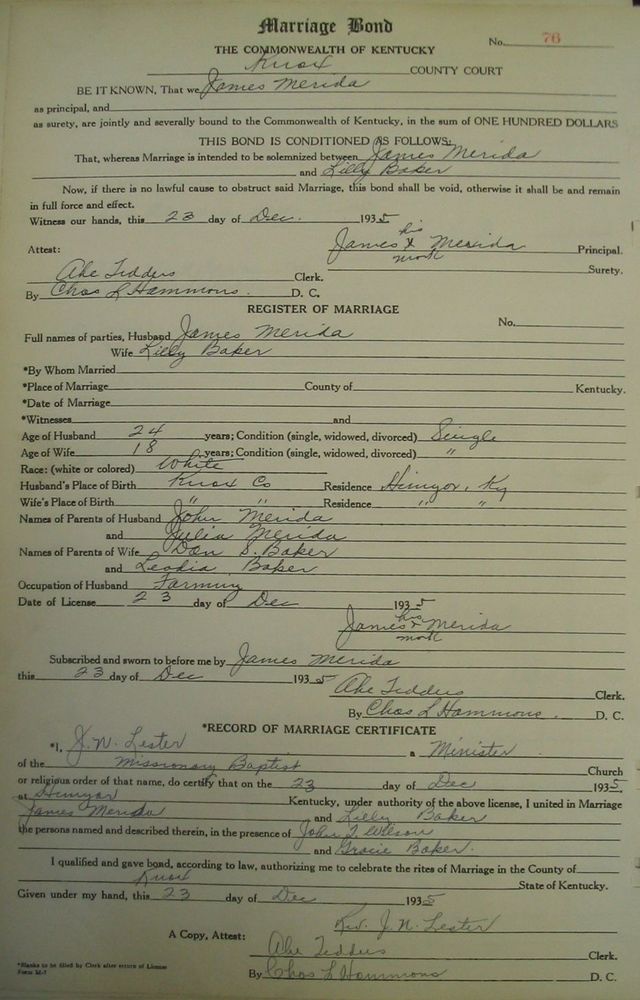 Marriage Bond
No. 76
THE COMMONWEALTH OF KENTUCKY
Knox COUNTY COURT
BE IT KNOWN, That we James Merida
as principal, and
as surety, are jointly and severally bound to the Commonwealth of Kentucky, in the sum of ONE HUNDRED DOLLARS
THIS BOND IS CONDITIONED AS FOLLOWS:
That, whereas Marriage is intended to be solemnized between James Merida
and Lilly Baker
Now, if there is no lawful cause to obstruct said Marriage, this bond shall be void, otherwise it shall be and remain
in full force and effect.
Witness our hands, this 23 day of Dec. 1935
his
James X Merida Principal.
mark
Attest:
Surety.
Abe Tedders Clerk.
By Chas L Hammons. D. C.
REGISTER OF MARRIAGE
No.
Full names of parties, Husband James Merida
Wife Lilly Baker
*By Whom Married
*Place of Marriage County of Kentucky.
*Date of Marriage
*Witnesses and
Age of Husband 24 years; Condition (single, widowed, divorced) Single
Age of Wife 18 years; Condition (single, widowed, divorced) "
Race: (white or colored) White
Husband's Place of Birth Knox Co Residence Hinyor, Ky
Wife's Place of Birth " " Residence " "
Names of Parents of Husband John Merida
and Julia Merida
Names of Parents of Wife Dan S. Baker
and Leodia Baker
Occupation of Husband Farming
Date of License 23 day of Dec 1935
his
James X Merida
mark
Subscribed and sworn to before me by James Merida
this 23 day of Dec 1935
Abe Tedders Clerk.
By Chas L Hammons. D. C.
*RECORD OF MARRIAGE CERTIFICATE
*I, J. N. Lester a Minister
of the Missionary Baptist Church
or religious order of that name, do certify that on the 23 day of Dec 1935.
at Hinyor Kentucky, under authority of the above license, I united in Marriage
James Merida and Lilly Baker
the persons named and described therein, in the presence of John T Wilson
and Gracie Baker.
I qualified and gave bond, according to law, authorizing me to celebrate the rites of Marriage in the County of
Knox State of Kentucky.
Given under my hand, this 23 day of Dec 1935
Rev. J. N. Lester
A Copy, Attest:
Abe Tedders Clerk.
*Blanks to be filled by Clerk after return of License
Form M-7
By Chas L Hammons D. C.